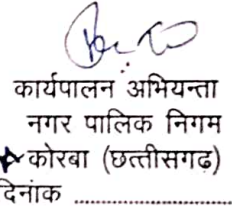 कार्यपालन अभियन्ता
नगर पालिक निगम
कोरबा (छत्तीसगढ़)
दिनांक ....................................